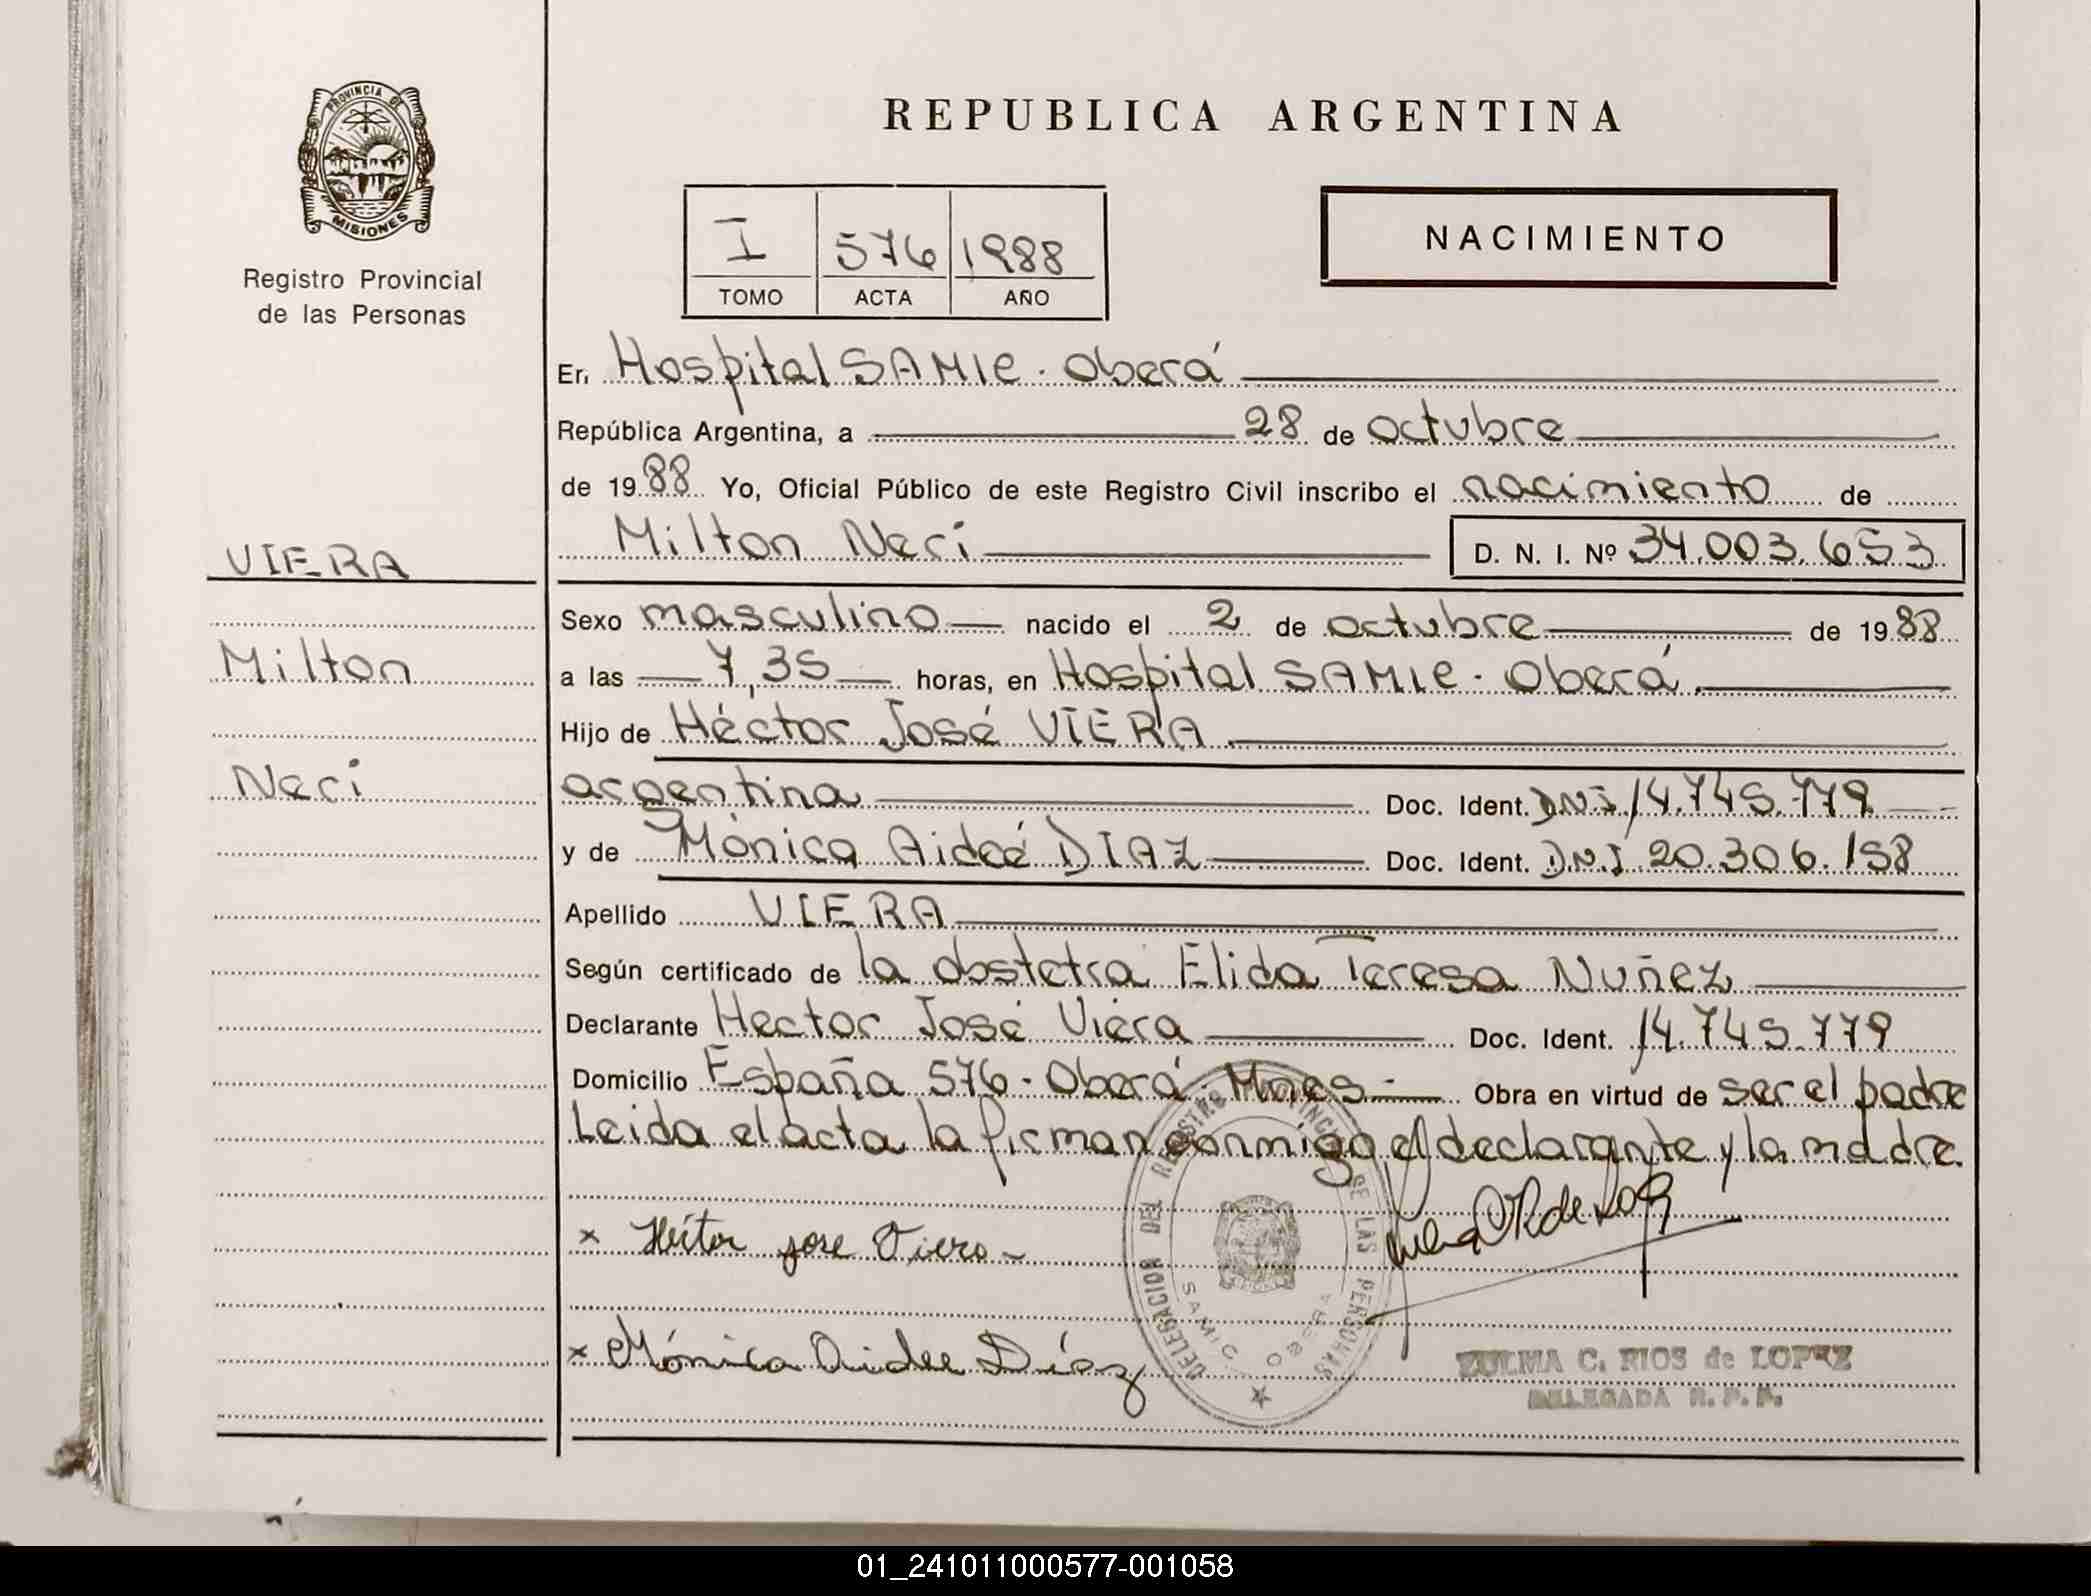 PROVINCIA DE
MISIONES
Registro Provincial
de las Personas
REPUBLICA ARGENTINA
I 576 1988
TOMO ACTA AÑO
NACIMIENTO
En Hospital SAMIC - Oberá
República Argentina, a 28 de octubre
de 1988 Yo, Oficial Público de este Registro Civil inscribo el nacimiento de
Milton Neri D. N. I. Nº 34.003.653
VIERA
Milton
Neri
Sexo masculino nacido el 2 de octubre de 1988
a las 7,35 horas, en Hospital SAMIC - Oberá.
Hijo de Héctor José VIERA
argentina Doc. Ident. D.N.I. 14.745.779
y de Mónica Aideé DIAZ Doc. Ident. D.N.I. 20.306.158
Apellido VIERA
Según certificado de la obstetra Elida Teresa Nuñez
Declarante Hector José Viera Doc. Ident. 14.745.779
Domicilio España 576 - Oberá - Mnes - Obra en virtud de ser el padre
Leida el acta la firman conmigo el declarante y la madre.
x Héctor jose Viera
x Mónica Aidee Díaz
DELEGACION DEL REGISTRO PROVINCIAL DE LAS PERSONAS
SAMIC OBERA
ZULMA C. RIOS de LOPEZ
DELEGADA R. P. P.
01_241011000577-001058